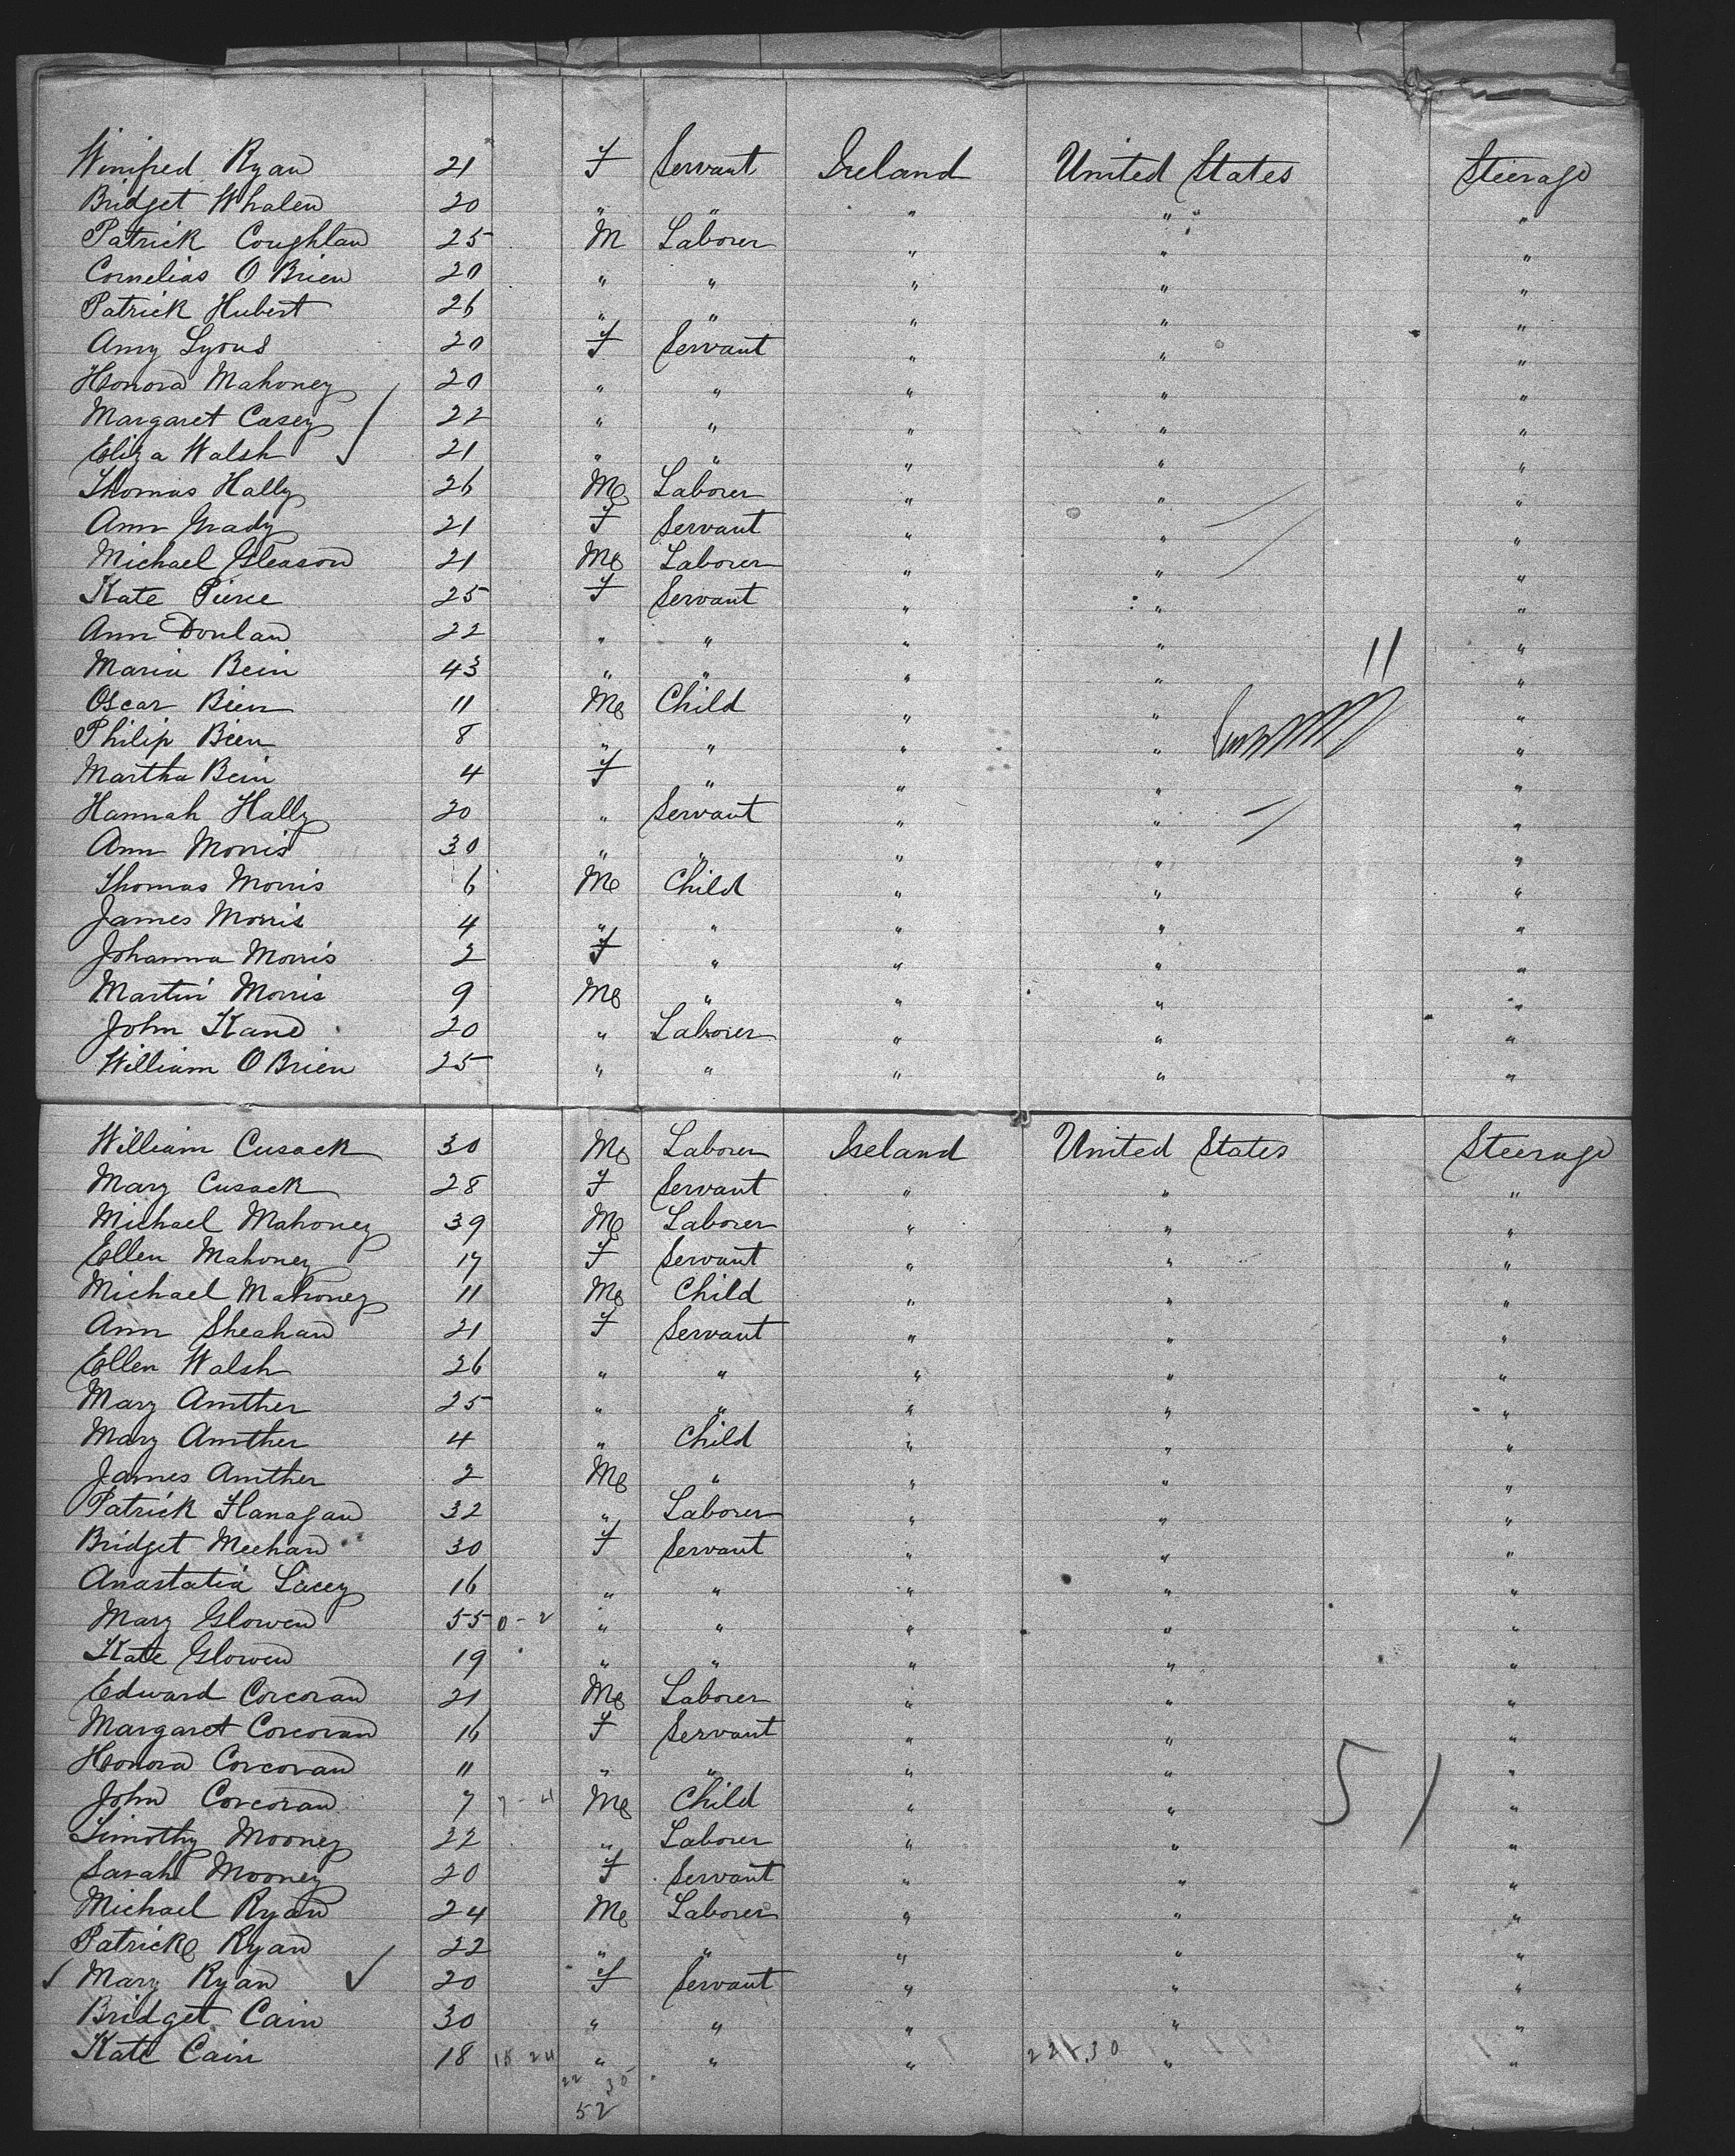 Winifred Ryan 21 F Servant Ireland United States Steerage
Bridget Whalen 20 " " " " "
Patrick Coughlan 25 M Laborer " " "
Cornelias O Brien 20 " " " " "
Patrick Hubert 26 " " " " "
Amy Lyons 20 F Servant " " "
Honora Mahoney 20 " " " " "
Margaret Casey 22 " " " " "
Eliza Walsh 21 " " " " "
Thomas Hally 26 M Laborer " " "
Ann Grady 21 F Servant " " "
Michael Gleason 21 M Laborer " " "
Kate Pierce 25 F Servant " " "
Ann Donlan 22 " " " " "
Maria Bein 43 " " " " 11 "
Oscar Bien 11 M Child " " "
Philip Bien 8 " " " " "
Martha Bein 4 F " " " "
Hannah Hally 20 " Servant " " "
Ann Morris 30 " " " " "
Thomas Morris 6 M Child " " "
James Morris 4 " " " " "
Johanna Morris 2 F " " " "
Martin Morris 9 M " " " "
John Kane 20 " Laborer " " "
William O Brien 25 " " " " "
William Cusack 30 M Laborer Ireland United States Steerage
Mary Cusack 28 F Servant " " "
Michael Mahoney 39 M Laborer " " "
Ellen Mahoney 17 F Servant " " "
Michael Mahoney 11 M Child " " "
Ann Sheahan 21 F Servant " " "
Ellen Walsh 26 " " " " "
Mary Amther 25 " " " " "
Mary Amther 4 " Child " " "
James Amther 2 M " " " "
Patrick Flanagan 32 " Laborer " " "
Bridget Meehan 30 F Servant " " "
Anastatia Lacey 16 " " " " "
Mary Glowen 55 0-2 " " " " "
Kate Glowen 19 " " " " "
Edward Corcoran 21 M Laborer " " "
Margaret Corcoran 16 F Servant " " "
Honora Corcoran 11 " " " " "
John Corcoran 7 7-4 M Child " " 51 "
Timothy Mooney 22 " Laborer " " "
Sarah Mooney 20 F Servant " " "
Michael Ryan 24 M Laborer " " "
Patrick Ryan 22 " " " " "
✓ Mary Ryan ✓ 20 F Servant " " "
Bridget Cain 30 " " " " "
Kate Cain 18 18 24 " " " " "
22 30
52